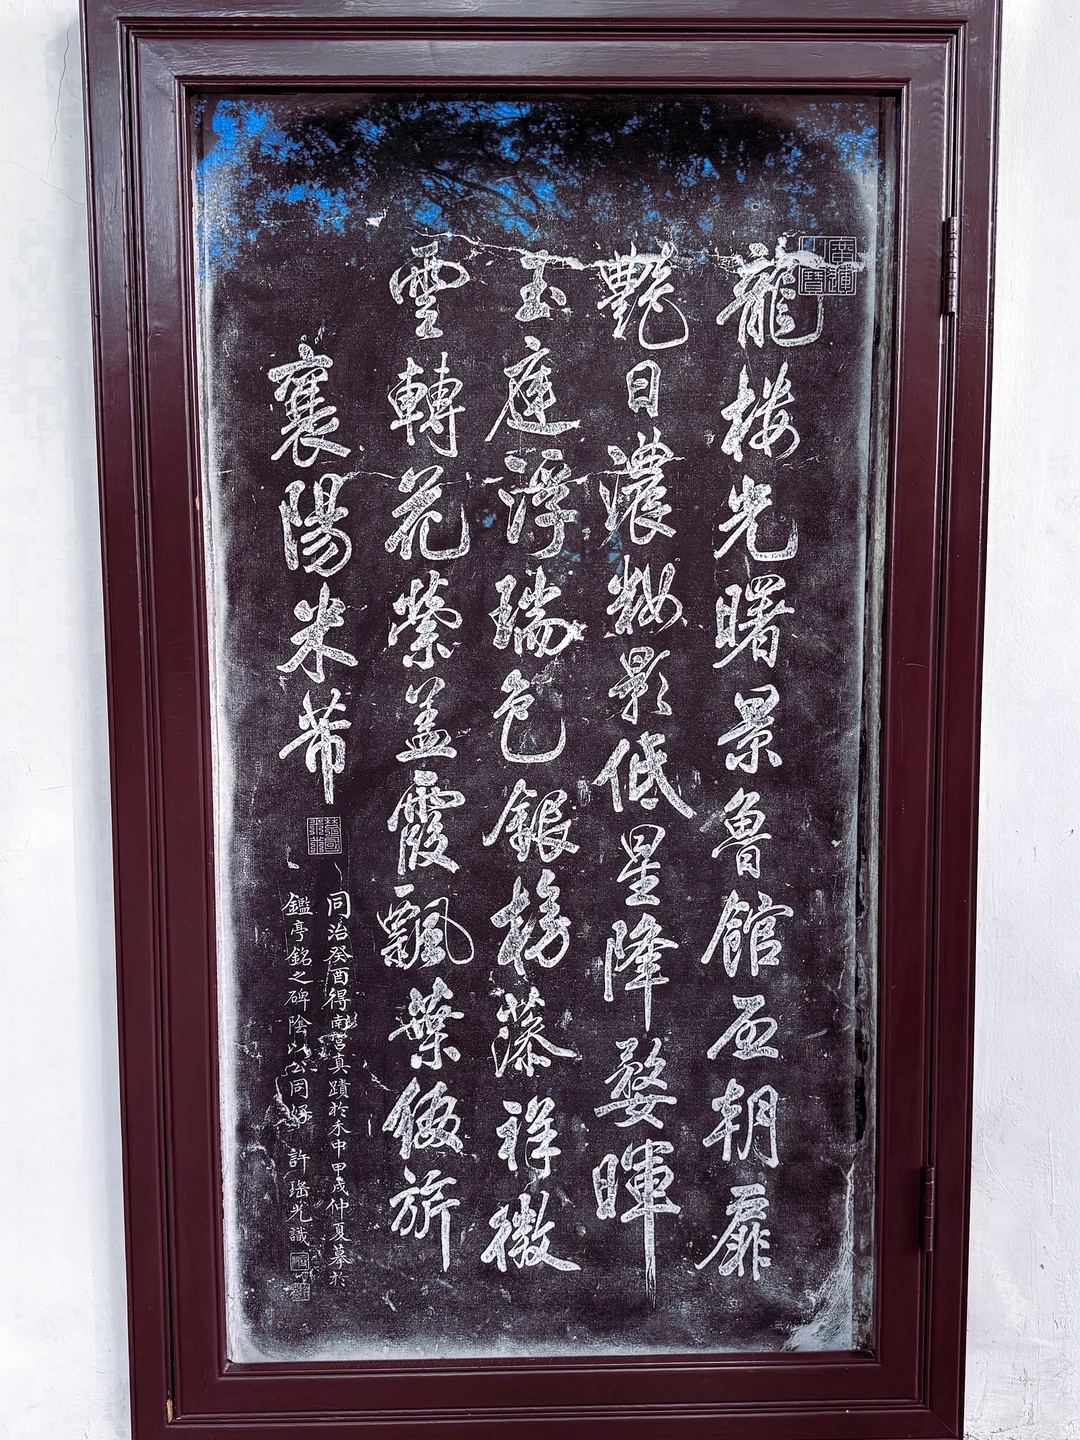 龍楼光曙景魯館啓朝扉
艷日濃粧影低星降婺暉
玉庭浮瑞色銀榜藻祥徽
雲轉花縈盖霞飄葉綴旂
襄陽米芾
同治癸酉得南宮真蹟於禾中甲戌仲夏摹於
鑑亭銘之碑陰以公同好 許瑤光識